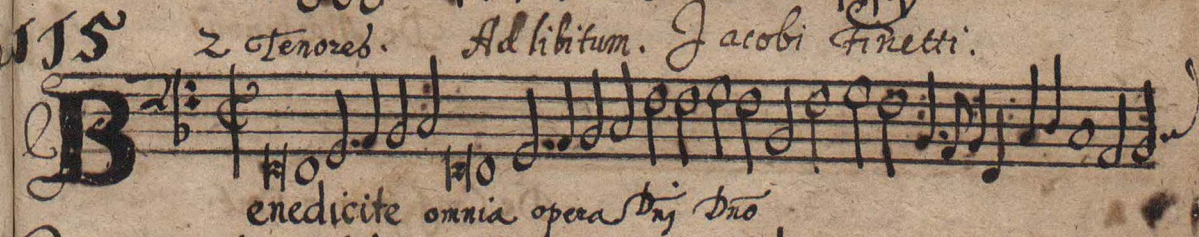 115 2 Tenores. Ad libitum. Jacobi Finetti.
Benedicite omnia opera Dñj Dño